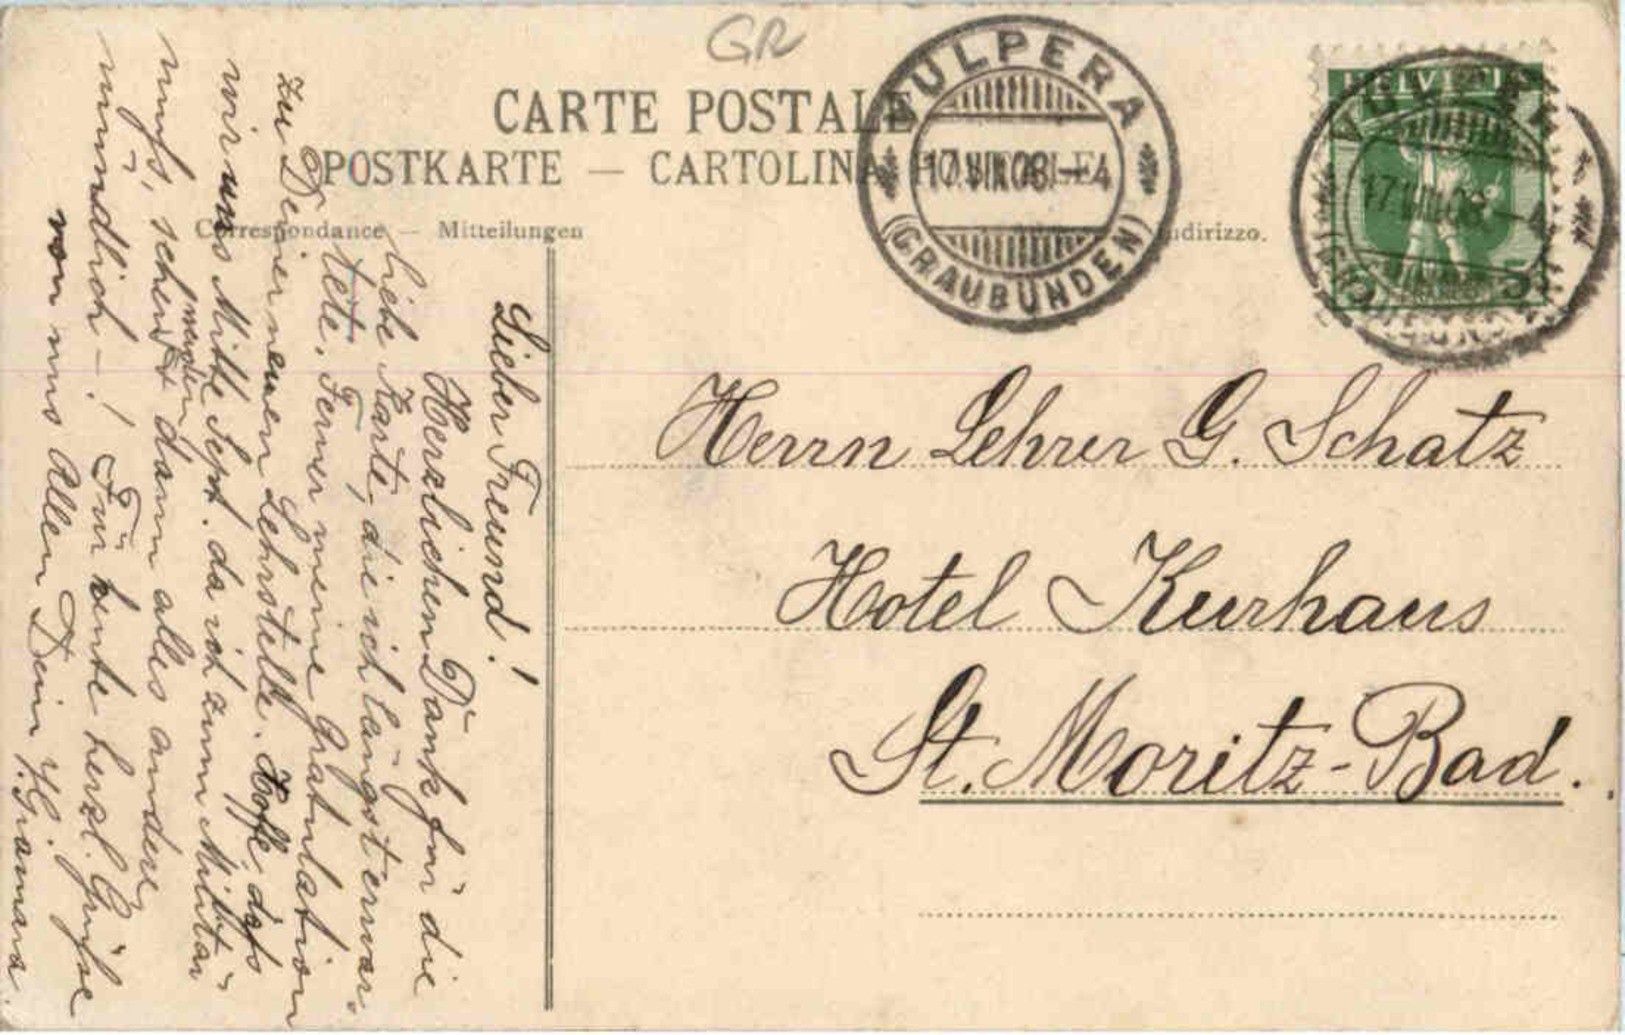 GR
CARTE POSTALE
POSTKARTE — CARTOLINA POSTALE
Correspondance — Mitteilungen
Indirizzo.
VULPERA
17.VIII.08.—4
(GRAUBÜNDEN)
HELVETIA
5 5
VULPERA
17.VIII.08.—4
Herrn Lehrer G. Schatz
Hotel Kurhaus
St. Moritz-Bad.
Lieber Freund!
Herzlichen Dank für die
liebe Karte, die ich längst erwar-
tete. Ferner meine Gratulation
zu Deiner neuen Lehrstelle. Hoffe, dass
wir uns Mitte Sept. da ich zum Militär
muss, sehen werden dann alles andere
mündlich —! Für heute herzl. Grüsse
von uns Allen Dein